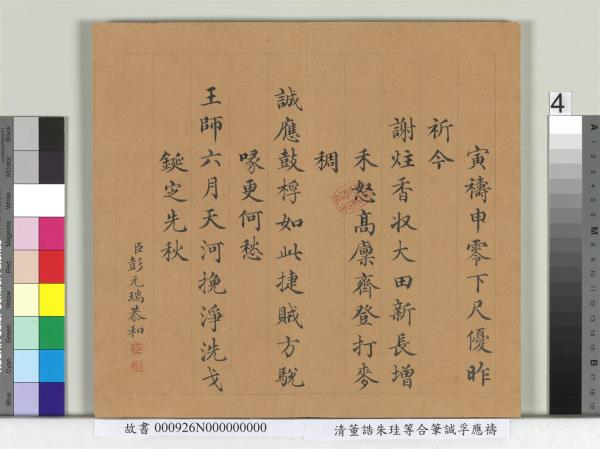 寅禱申零下尺優昨
祈今
謝炷香收大田新長增
禾怒高廩齊登打麥
稠
誠應鼓桴如此捷賊方駾
喙更何愁
王師六月天河挽淨洗戈
鋋定先秋
臣彭元瑞恭和
故書 000926N000000000
清董誥朱珪等合筆誠孚應禱
4